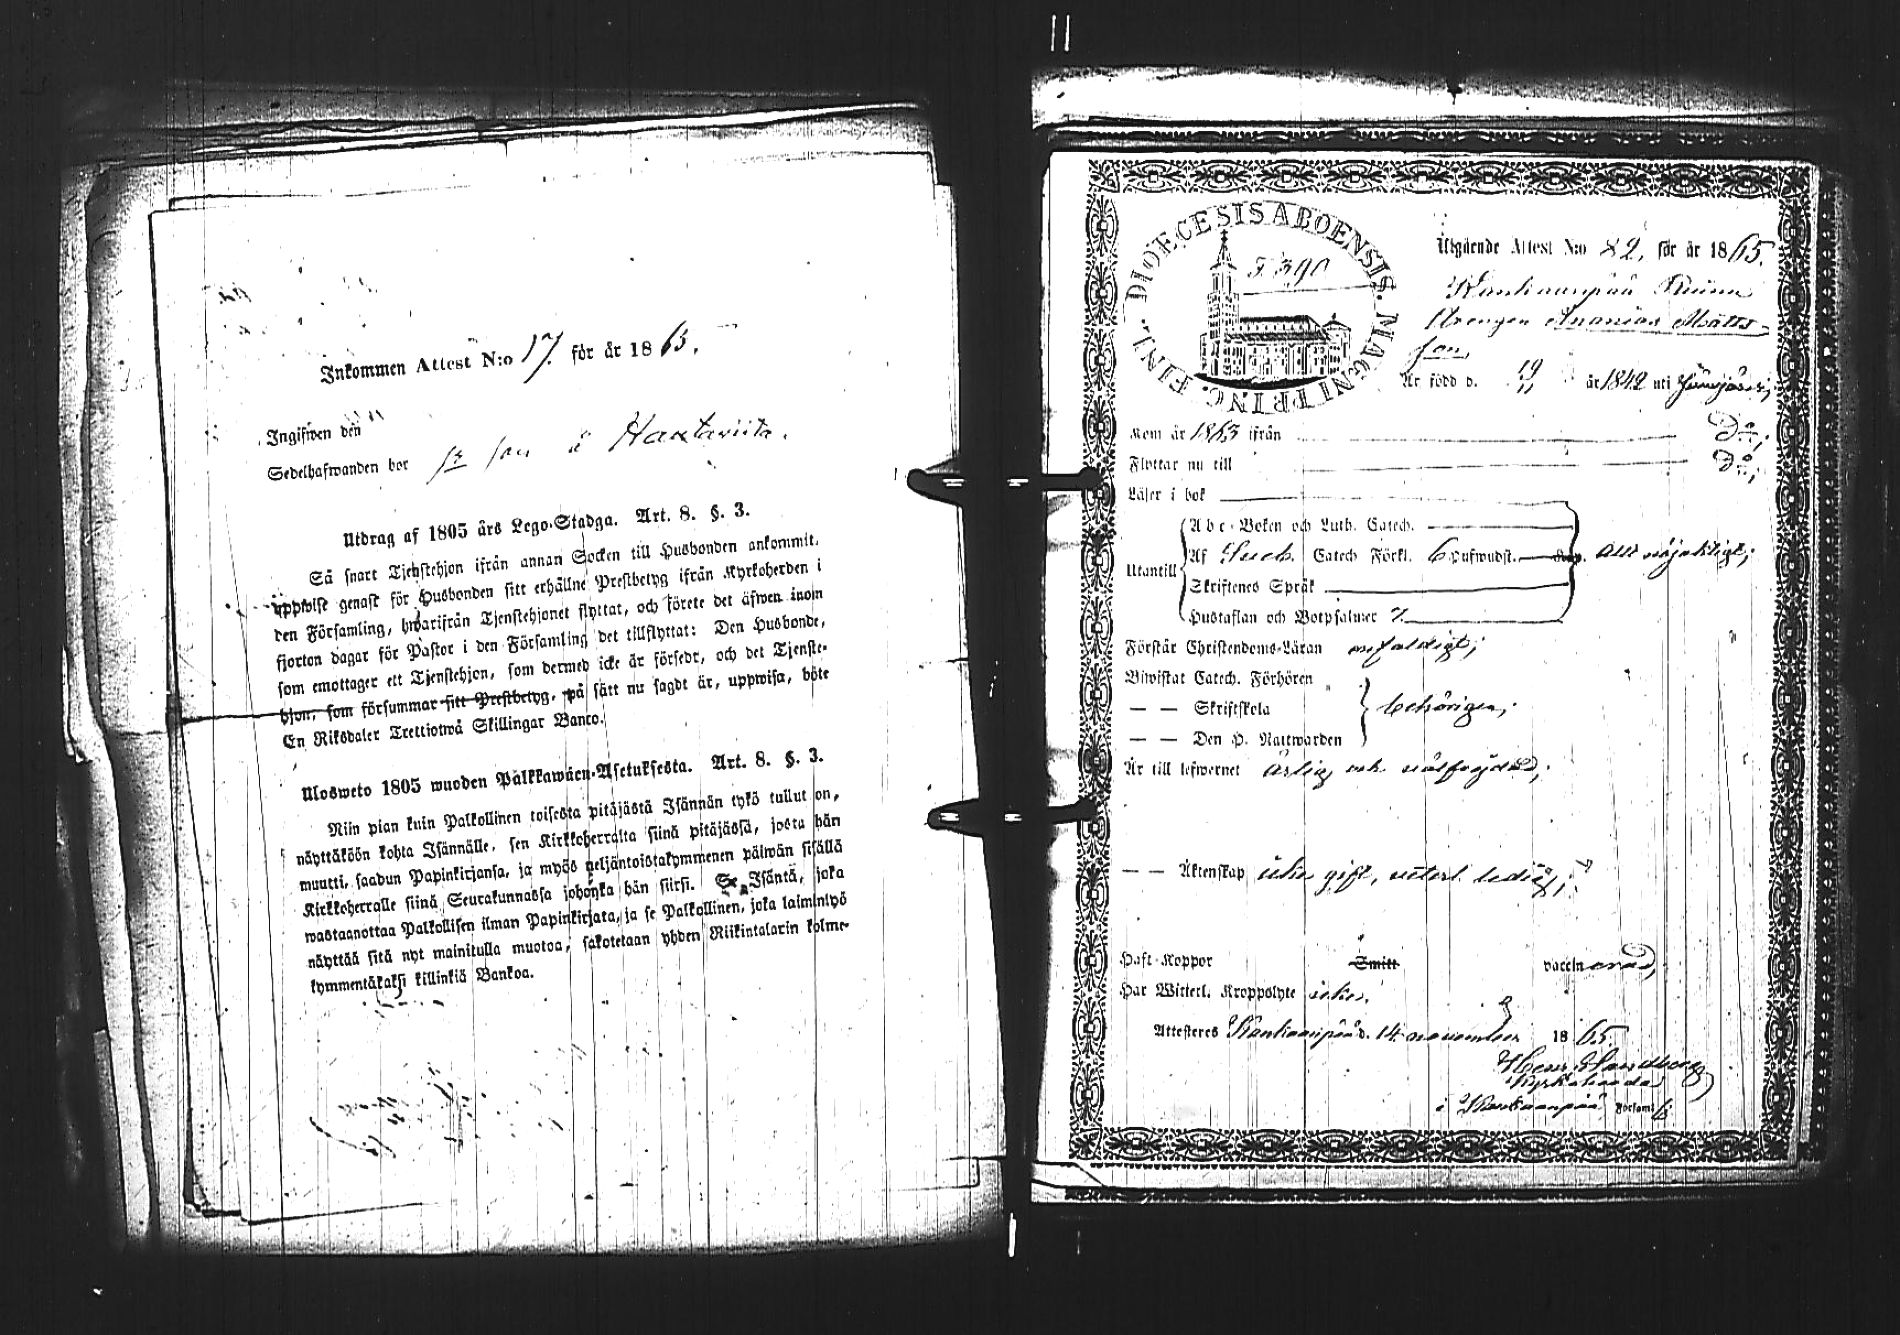 Inkommen Attest N:o 17. för år 1865.
Ingifwen den
Sedelhafwanden bor
Utdrag af 1805 års Lego-Stadga. Art. 8. §. 3.
Så snart Tjenstehjon ifrån annan Socken till Husbonden ankommit,
uppwise genast för Husbonden sitt erhållne Prestbetyg ifrån Kyrkoherden i
den Församling, hwarifrån Tjenstehjonet flyttat, och förete det äfwen inom
fjorton dagar för Pastor i den Församling det tillflyttat: Den Husbonde,
som emottager ett Tjenstehjon, som dermed icke är försedt, och det Tjenste-
hjon, som försummar sitt Prestbetyg, på sätt nu sagdt är, uppwisa, böte
En Riksdaler Trettiotwå Skillingar Banco.
Ulosweto 1805 wuoden Palkkawäen-Asetuksesta. Art. 8. §. 3.
Niin pian kuin Palkollinen toisesta pitäjästä Isännän tykö tullut on,
näyttäköön kohta Isännälle, sen Kirkkoherralta siinä pitäjässä, josta hän
muutti, saadun Papinkirjansa, ja myös neljäntoistakymmenen päiwän sisällä
Kirkkoherralle siinä Seurakunnassa johonka hän siirsi. Se Isäntä, joka
wastaanottaa Palkollisen ilman Papinkirjata, ja se Palkollinen, joka laiminlyö
näyttää sitä nyt mainitulla muotoa, sakotetaan yhden Riikintalarin kolme-
kymmentäkaksi killinkiä Bankoa.
DIOECESIS ABOENSIS. MAGNI PRINC. FINL.
F. 390
Utgående Attest N:o 82, för år 1865.
Kankaanpää
Drengen Ananias Matts-
son
Är född d. 19/11 år 1842 uti Jämijärvi,
Kom år 1863 ifrån D:o,
Flyttar nu till D:o,
Läser i bok
Utantill
Abc-Boken och Luth. Catech.
Af Catech Förkl. 6 Hufwudst. allt nöjaktigt;
Skriftenes Språk
Hustaflan och Botpsalmer 7
Förstår Christendoms-Läran enfaldigt;
Biwistat Catech. Förhören
— — Skriftskola behörigen;
— — Den H. Nattwarden
Är till lefwernet ärlig och välfrejdad;
— — Äktenskap icke gift, ledig;
Haft Koppor Smitt vaccinerad,
Har Witterl. Kroppslyte icke.
Attesteres Kankaanpää d. 14 november 1865.
Sandberg
Kyrkoherde
i Kankaanpää Församl.